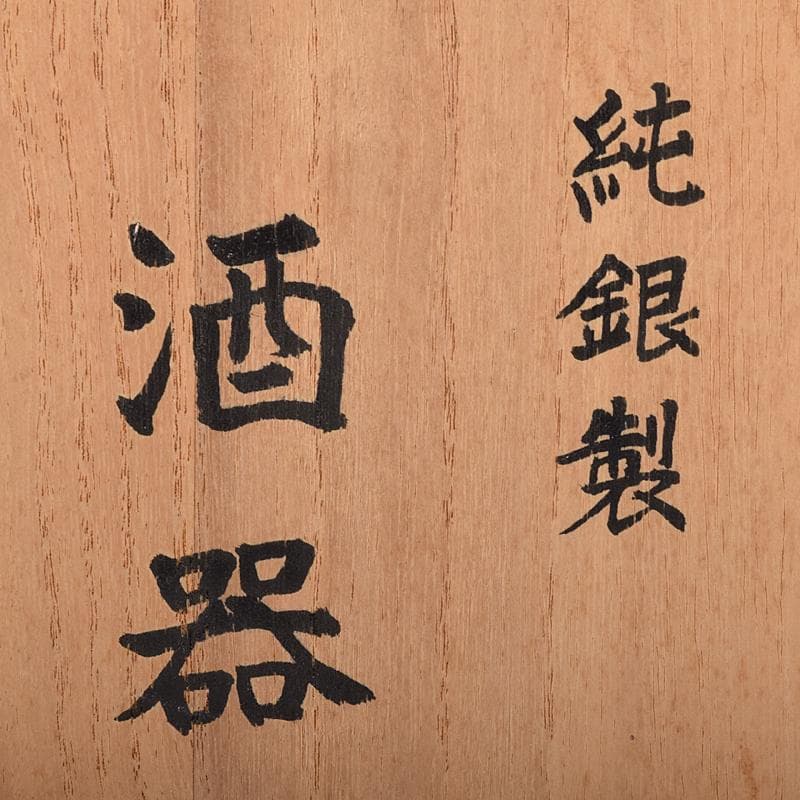 純銀製
酒器